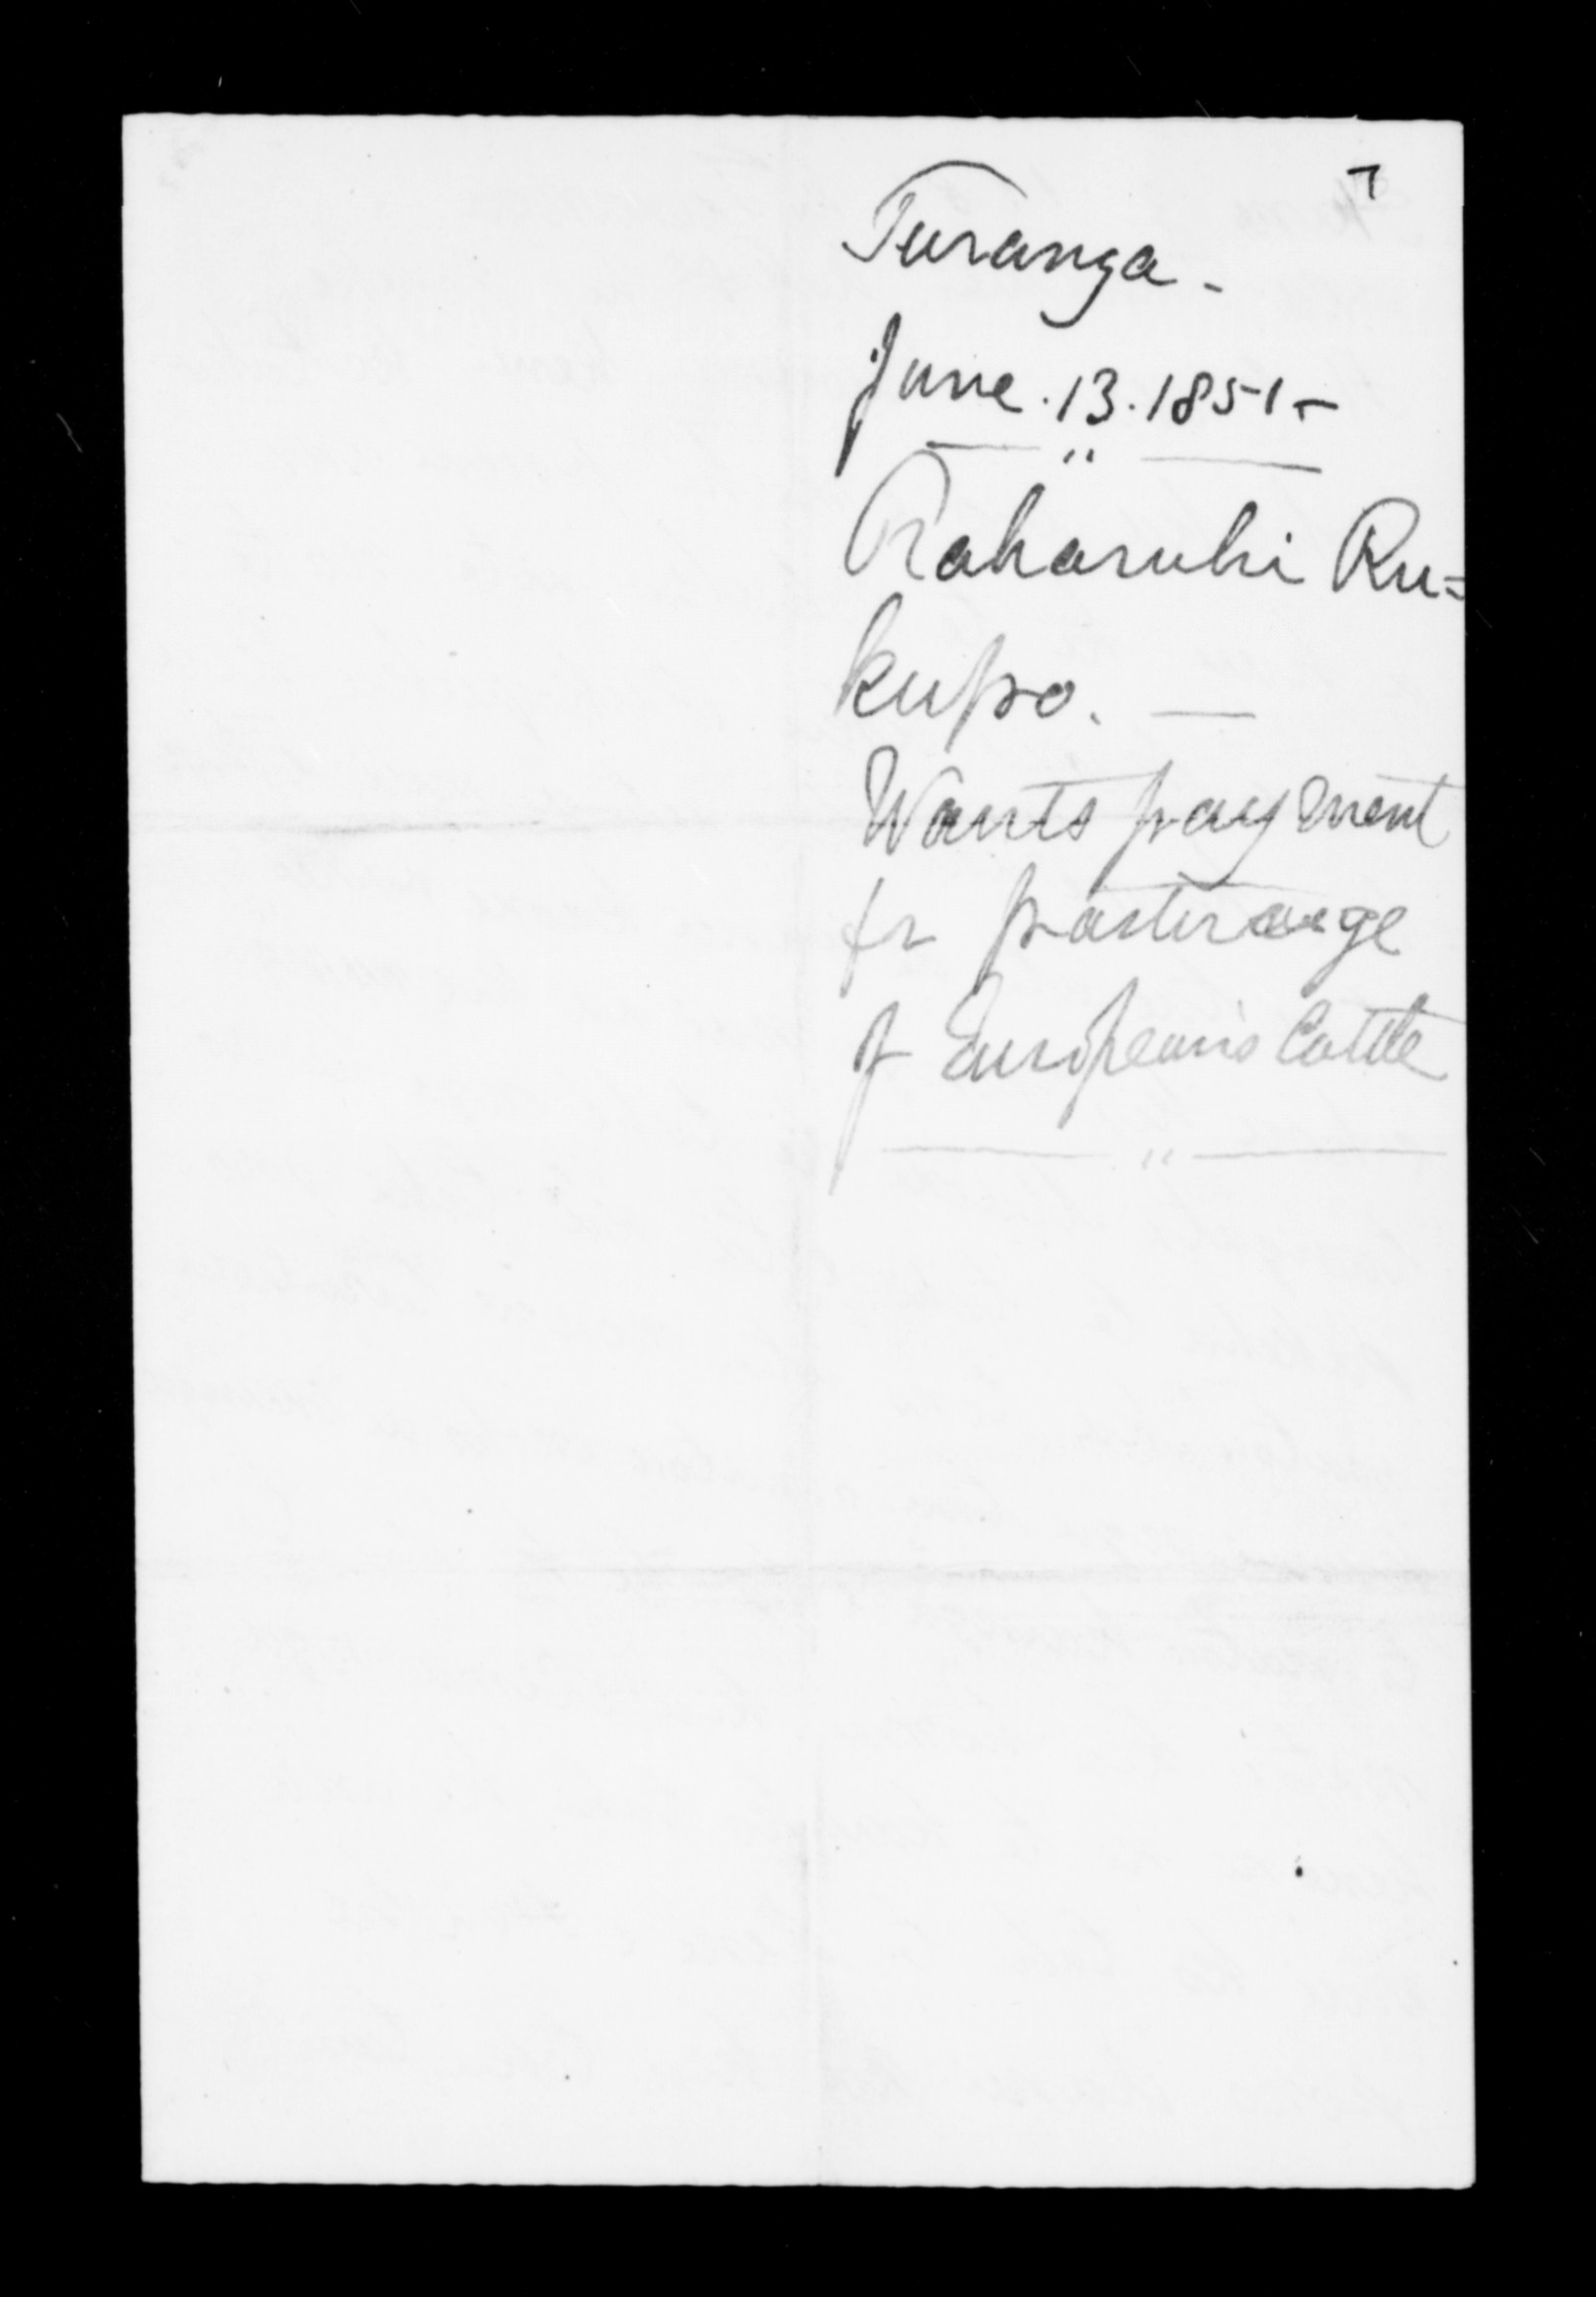 7
Turanga -
June . 13 . 1851 -
Raharuhi Ru=
kupo. —
Wants payment
for pasturage
of European's Cattle